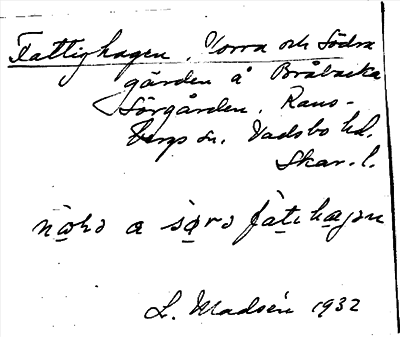 Fattighagen, Norra och Södra
gärden å Bråbacka
Sörgården. Rans-
bergs sn. Vadsbo hd.
Skar. l.
a
L. Madsén 1932